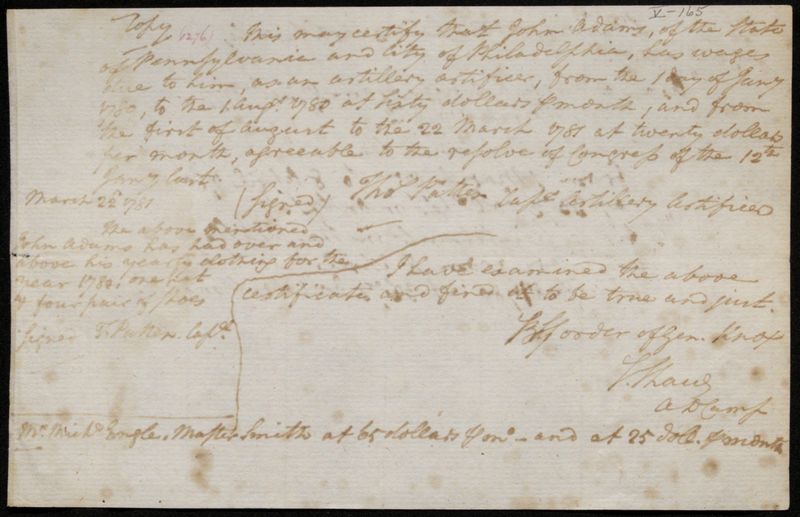 V-165
Copy (1276) This may certify that John Adams, of the State
of Pennsylvania and City of Philadelphia, has wages
due to him, as an artillery artificer, from the 1 day of Jany
1780, to the 1 Augt. 1780 at sixty dollars p month, and from
the first of august to the 22 March 1781 at twenty dollars
per month, agreeable to the resolve of Congress of the 12th
Jany last.
March 22d 1781
(Signed) Thos Patten Capt. artillery Artificers
The above mentioned
John Adams has had over and
above his yearly clothing for the
year 1780, one hat
& four pair of shoes
Signed T. Patten. Capt.
I have examined the above
certificate, and find it to be true and just.
By order of Gen. Knox
S. Shaw
A D Camp
Mr. Michl Engle, Master Smith at 65 dollars p mo. - and at 25 doll. p month